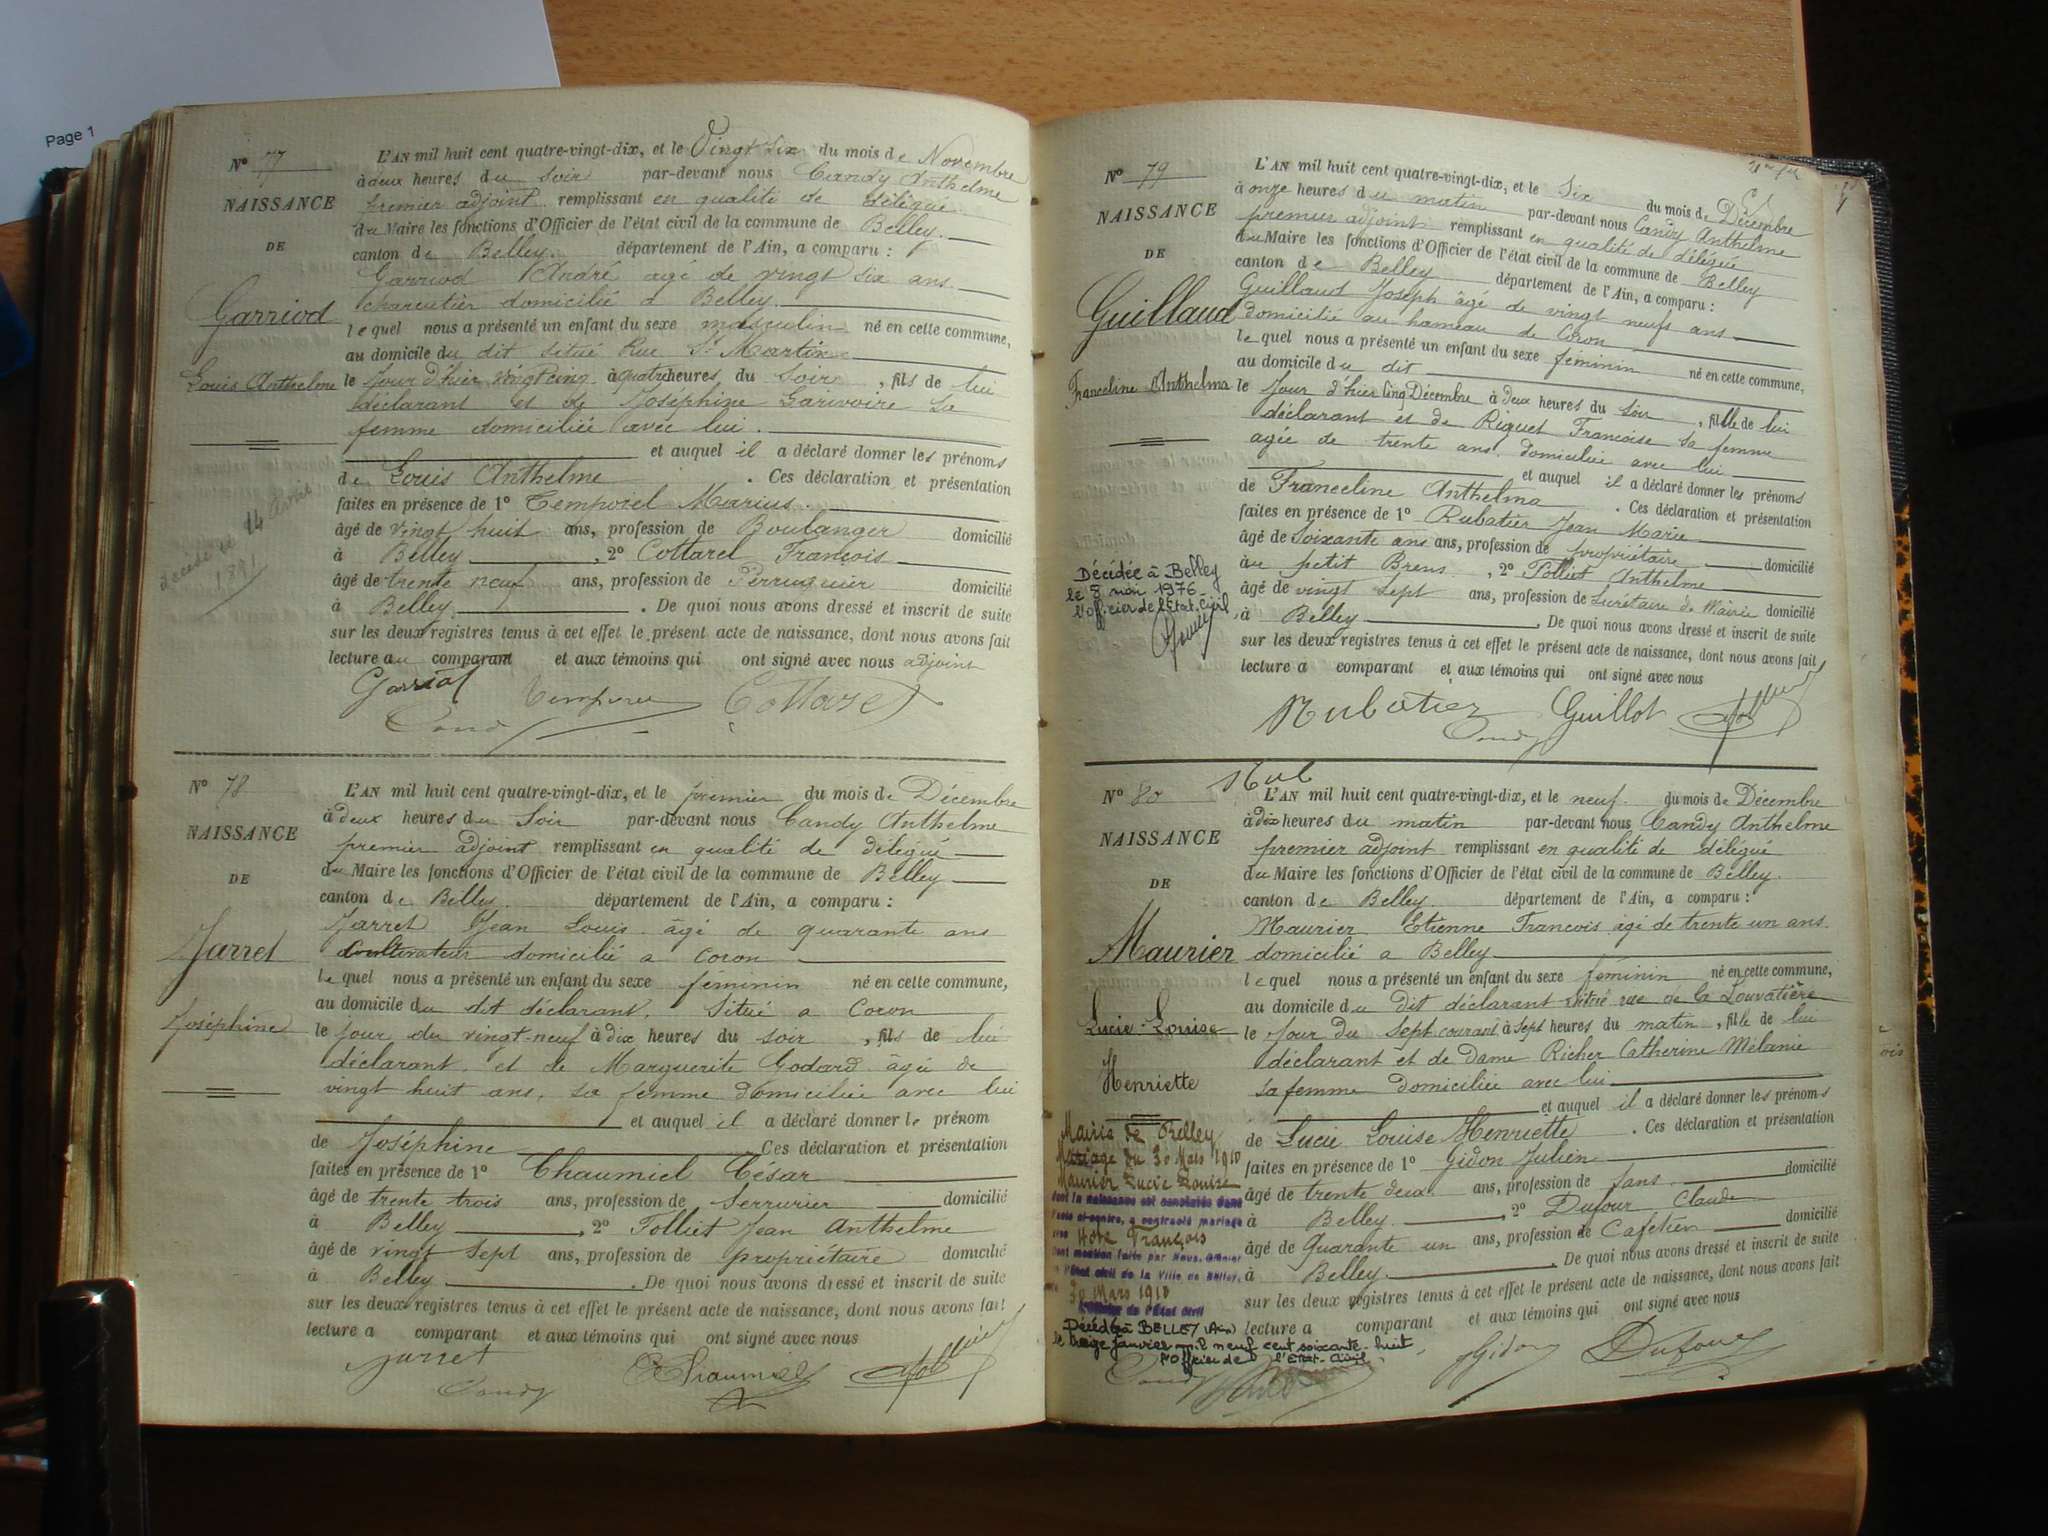 Page 1
N° 77
NAISSANCE
DE
Garriod
Louis Anthelme
décédé le 14 Avril
1891
L'AN mil huit cent quatre-vingt-dix, et le Vingt six du mois de Novembre
à deux heures du soir par-devant nous Candy Anthelme
premier adjoint remplissant en qualité de délégué
du Maire les fonctions d'Officier de l'état civil de la commune de Belley.
canton de Belley. département de l'Ain, a comparu :
Garriod André âgé de vingt six ans
charcutier domicilié à Belley.
lequel nous a présenté un enfant du sexe masculin né en cette commune,
au domicile du dit situé Rue St Martin
le jour d'hier vingt cinq à quatre heures du soir, fils de lui
déclarant et de Joséphine Garivoire sa
femme domiciliée avec lui.
et auquel il a déclaré donner les prénoms
de Louis Anthelme. Ces déclaration et présentation
faites en présence de 1° Temporel Marius.
âgé de vingt huit ans, profession de Boulanger domicilié
à Belley, 2° Cottarel François
âgé de trente neuf ans, profession de Perruquier domicilié
à Belley. De quoi nous avons dressé et inscrit de suite
sur les deux registres tenus à cet effet le présent acte de naissance, dont nous avons fait
lecture au comparant et aux témoins qui ont signé avec nous adjoint
Garriod Temporel Cottarel
Candy
N° 78
NAISSANCE
DE
Jarret
Joséphine
L'AN mil huit cent quatre-vingt-dix, et le premier du mois de Décembre
à deux heures du Soir par-devant nous Candy Anthelme
premier adjoint remplissant en qualité de délégué
du Maire les fonctions d'Officier de l'état civil de la commune de Belley
canton de Belley. département de l'Ain, a comparu :
Jarret Jean Louis âgé de quarante ans
Cultivateur domicilié a Coron
lequel nous a présenté un enfant du sexe féminin né en cette commune,
au domicile du dit déclarant. Situé a Coron
le jour du vingt-neuf à dix heures du soir, fils de lui
déclarant. et de Marguerite Godard âgée de
vingt huit ans, sa femme domiciliée avec lui
et auquel il a déclaré donner le prénom
de Joséphine Ces déclaration et présentation
faites en présence de 1° Chaumiel César
âgé de trente trois ans, profession de Serrurier domicilié
à Belley, 2° Folliet Jean Anthelme
âgé de vingt sept ans, profession de propriétaire domicilié
à Belley. De quoi nous avons dressé et inscrit de suite
sur les deux registres tenus à cet effet le présent acte de naissance, dont nous avons fait
lecture a comparant et aux témoins qui ont signé avec nous
Jarret Chaumiel
Candy
N° 79
NAISSANCE
DE
Guillaud
Franceline Anthelma
Décédée à Belley
le 8 mai 1976
l'officier de l'Etat-Civil
L'AN mil huit cent quatre-vingt-dix, et le Six du mois de Décembre
à onze heures du matin par-devant nous Candy Anthelme
premier adjoint remplissant en qualité de délégué
du Maire les fonctions d'Officier de l'état civil de la commune de Belley
canton de Belley département de l'Ain, a comparu :
Guillaud Joseph âgé de vingt neufs ans
domicilié au hameau de Coron
lequel nous a présenté un enfant du sexe féminin né en cette commune,
au domicile du dit
le jour d'hier Cinq Décembre à deux heures du Soir, fille de lui
déclarant et de Riquet Françoise sa femme
agée de trente ans. domiciliée avec lui
et auquel il a déclaré donner les prénoms
de Franceline Anthelma. Ces déclaration et présentation
faites en présence de 1° Rubatier Jean Marie
âgé de Soixante ans ans, profession de propriétaire domicilié
au petit Brens, 2° Folliet Anthelme
âgé de vingt sept ans, profession de Secrétaire de Mairie domicilié
à Belley. De quoi nous avons dressé et inscrit de suite
sur les deux registres tenus à cet effet le présent acte de naissance, dont nous avons fait
lecture a comparant et aux témoins qui ont signé avec nous
Rubatier Guillot
Candy
N° 80
Rub
NAISSANCE
DE
Maurier
Lucie-Louise
Henriette
Mairie de Belley
Mariage du 30 Mars 1910
Maurier Lucie Louise
dont la naissance est constatée dans
l'acte ci-contre, a contracté mariage
avec Hote François
Dont mention faite par Nous, Officier
de l'état civil de la Ville de Belley,
30 Mars 1910
L'Officier de l'État Civil
Décédée à BELLEY (Ain)
le treize Janvier mil neuf cent soixante-huit
l'Officier de l'Etat-Civil,
L'AN mil huit cent quatre-vingt-dix, et le neuf. du mois de Décembre
à dix heures du matin par-devant nous Candy Anthelme
premier adjoint remplissant en qualité de délégué
du Maire les fonctions d'Officier de l'état civil de la commune de Belley.
canton de Belley. département de l'Ain, a comparu :
Maurier Etienne François âgé de trente un ans.
domicilié a Belley
lequel nous a présenté un enfant du sexe féminin né en cette commune,
au domicile du dit déclarant situé rue de la Louvatière
le jour du Sept courant à Sept heures du matin, fille de lui
déclarant et de dame Richer Catherine Mélanie
sa femme domiciliée avec lui
et auquel il a déclaré donner les prénoms
de Lucie Louise Henriette. Ces déclaration et présentation
faites en présence de 1° Gidon Julien
âgé de trente deux ans, profession de Sans domicilié
à Belley, 2° Dufour Claude
âgé de Quarante un ans, profession de Cafetier domicilié
à Belley. De quoi nous avons dressé et inscrit de suite
sur les deux registres tenus à cet effet le présent acte de naissance, dont nous avons fait
lecture a comparant et aux témoins qui ont signé avec nous
Candy Gidon Dufour